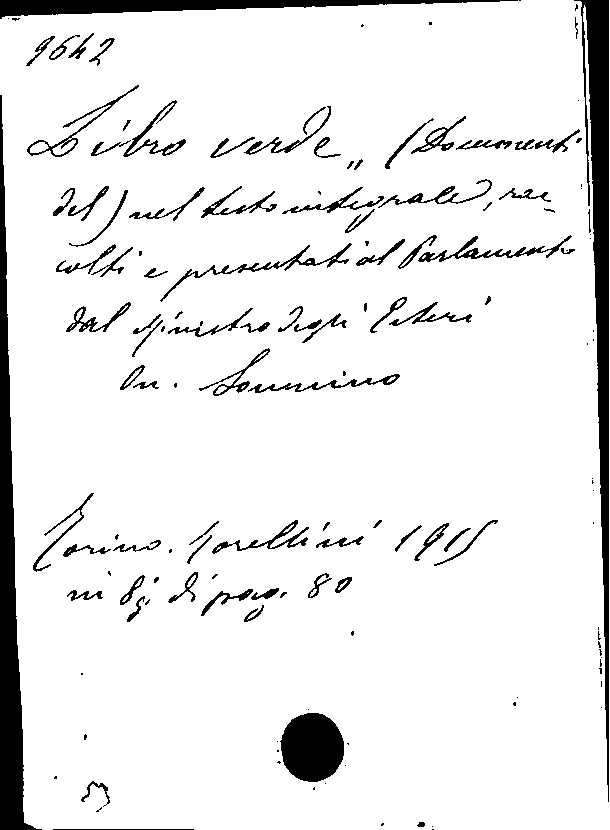 9642
Libro verde „ (Documenti
del) nel testo integrale, rac-
colti e presentati al Parlamento
dal Ministro degli Esteri
On. Sonnino
Torino. 1915
in 8º di pag. 80